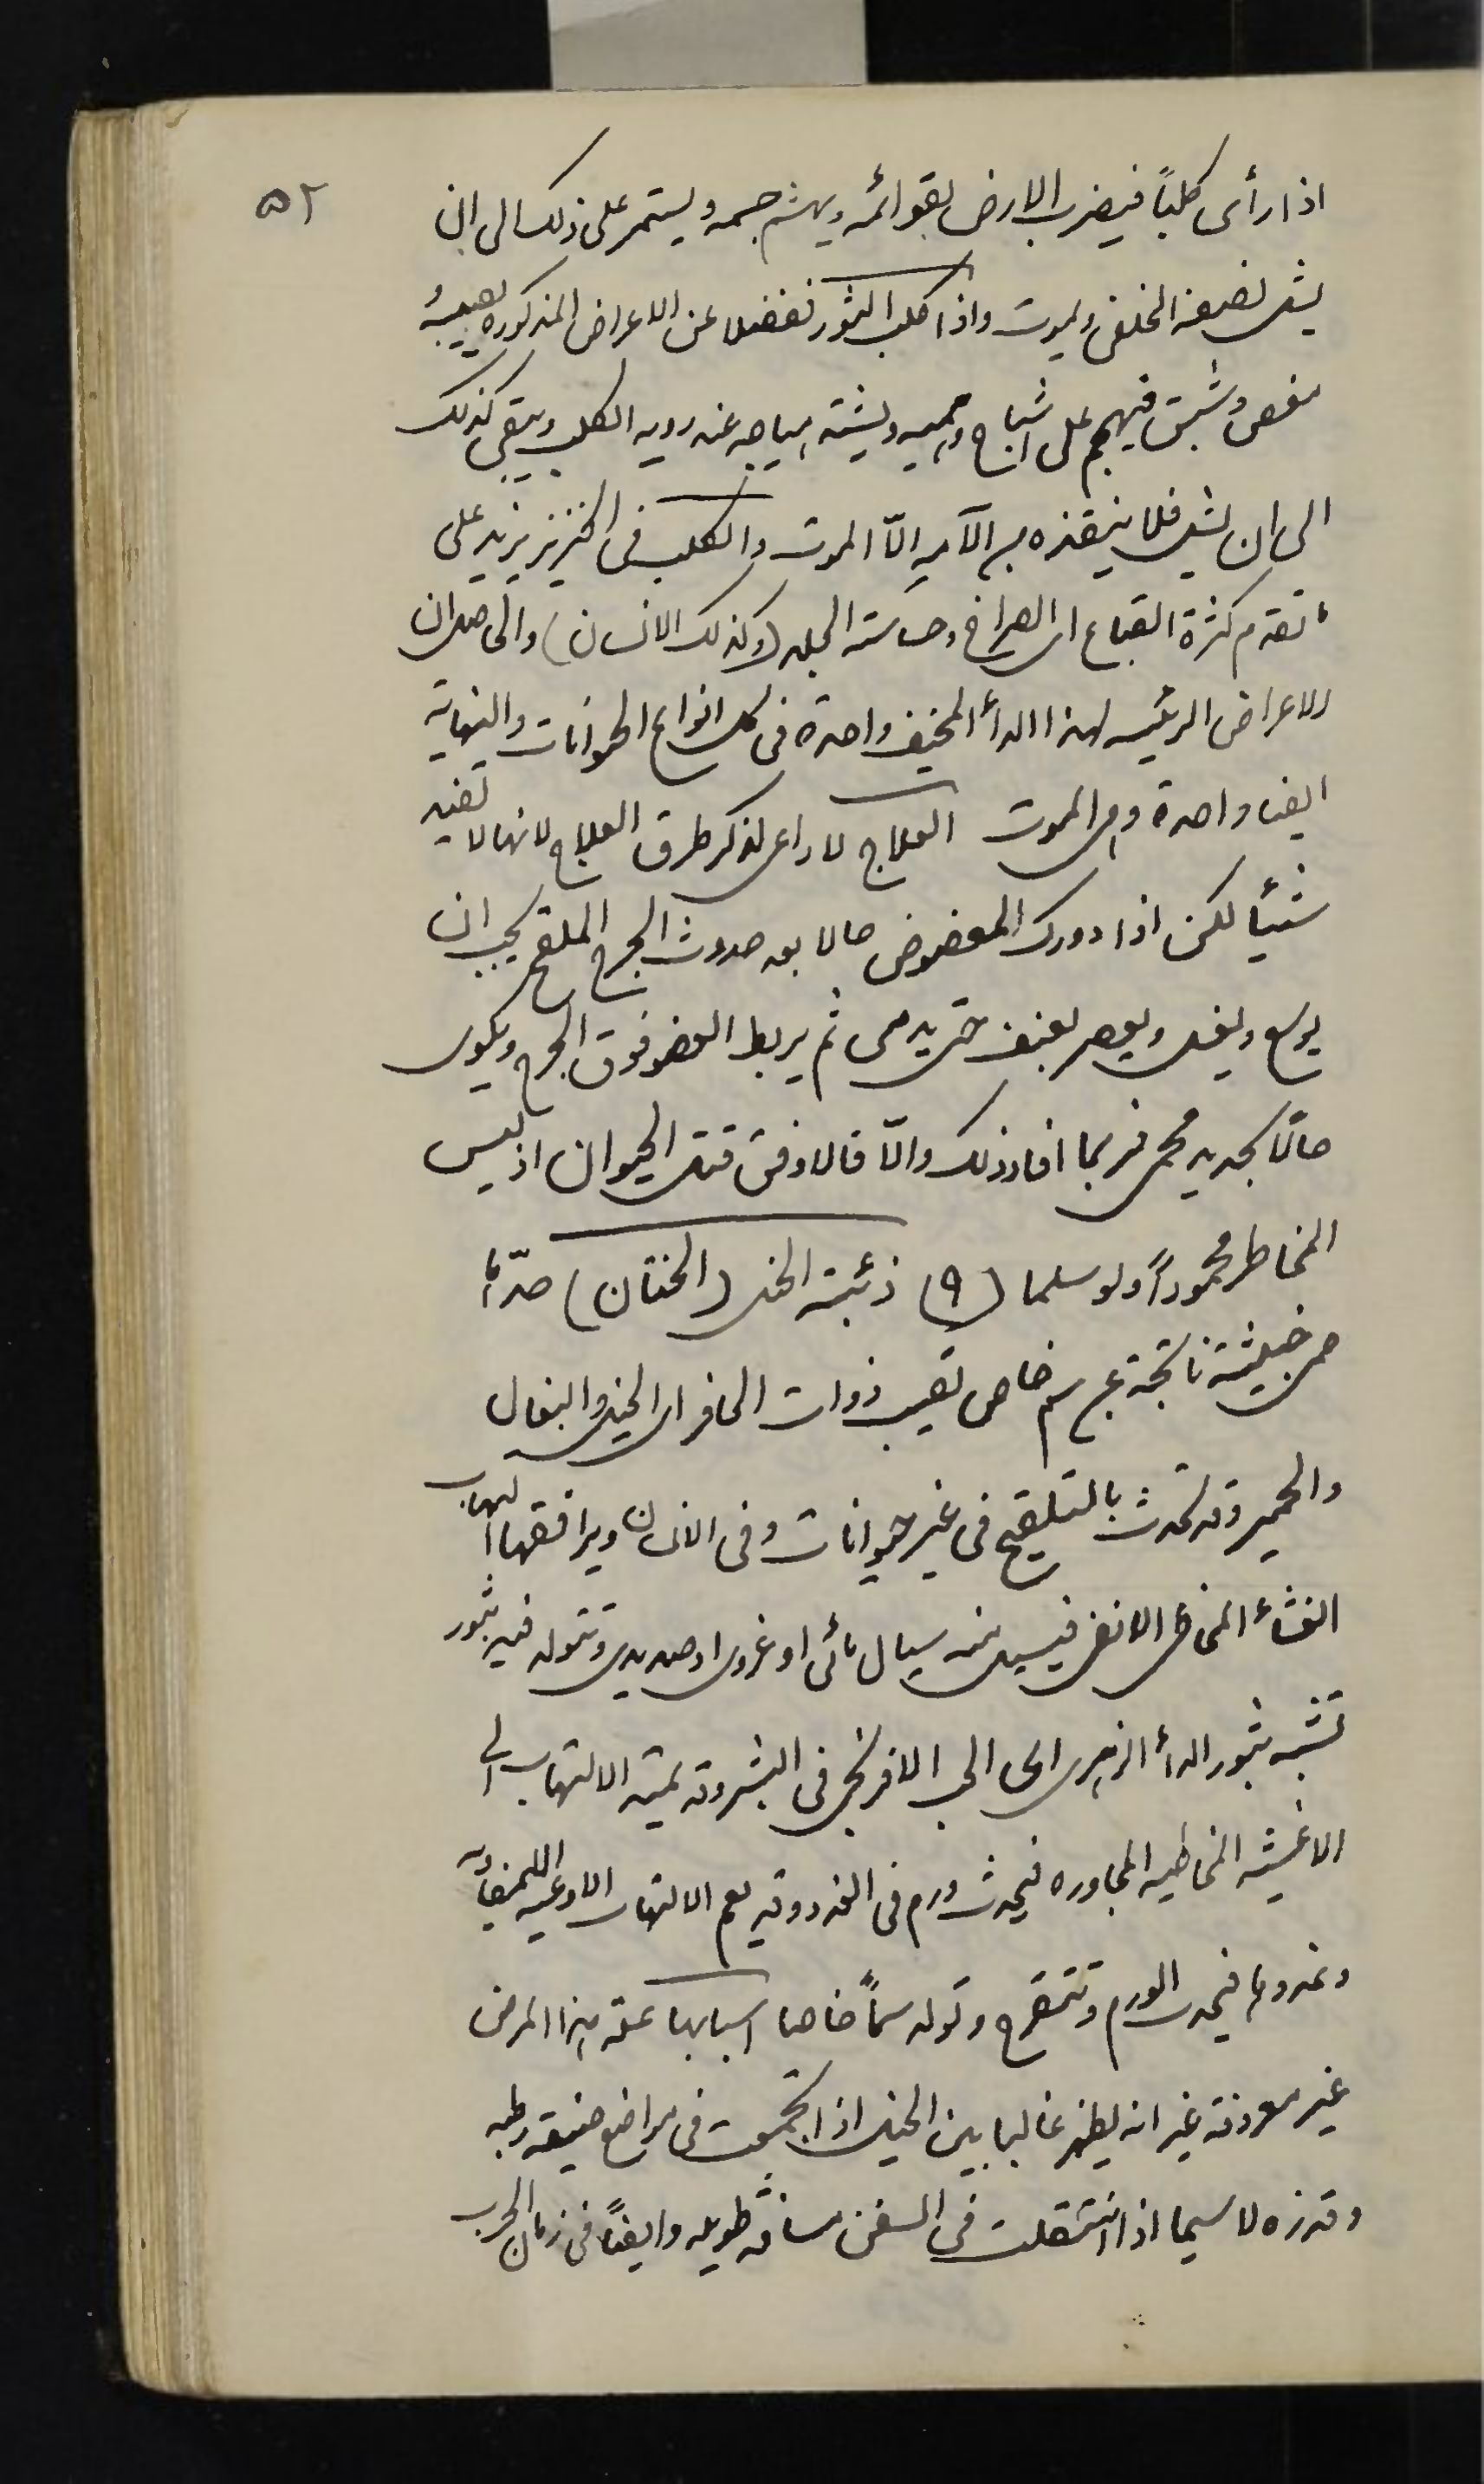 ٥٢
اذا رأى كلباً فيضرب الارض بقوائمه وينهش جسمه ويستمر على ذلك الى ان
يشل نصفه الخلفى ويموت واذا كلب الثور ففضلا عن الاعراض المذكوره يصيبه
مغص وشبق فيهجم على اشباح وهميه ويشتد هياجه عند رويه الكلب ويبقى كذلك
الى ان يشل فلا ينقذه من آلامه الّا الموت والكلب فى الخنزير يزيد على
ما تقدم كثرة القباع اى الصراخ وحساسته الجلد (وكذلك الانسان) والحاصل ان
الاعراض الرئيسه لهذا الدأ المخيف واحدة فى كل انواع الحيوانات والنهاية
ايضا واحدة وهى الموت العلاج لا داعى لذكر طرق العلاج لانها لا تفيد
شيئأ لكن اذا دورك المعضوض حالا بعد حدوث الجرح الملقح يجب ان
يوسع ويغسل ويعصر بعنف حتى يدمى ثم يربط العضو فوق الجرح ويكوى
حالًا بحديد محمى فربما افاد ذلك والّا فالاوفق قتل الحيوان اذ ليس
المخاطر محموداً ولو سلما (٩) ذئبة الخيل (الخنان) حدّها
حمى خبيثة ناتجة عن سم خاص تصيب ذوات الحافر اى الخيل والبغال
والحمير وقد تحدث بالتلقيح فى غير حيوانات وفى الانسان ويرافقها التهاب
الغشاء المخاطى الانفى فيسيل منه سيال مائى او غروى او صديدى وتتولد فيه بثور
تشبه بثور الدأ الزهرى اى الحب الافرنجى فى البشر وقد يمتد الالتهاب الى
الاغشيه المخاطيه المجاوره فيحدث ورم فى الغدد وقد يعم الالتهاب الاوعيه اللمفاويه
وغددها فيحدث الورم وتتقرح وتولد سمًا خاصا اسبابها علة هذا المرض
غير معروفة غير انه يظهر غالبا بين الخيل اذا تجمعت فى مواضع ضيقه رطبه
وقذره لا سيما اذا انتقلت فى السفن مسافة طويله وايضًا فى زمان الحرب